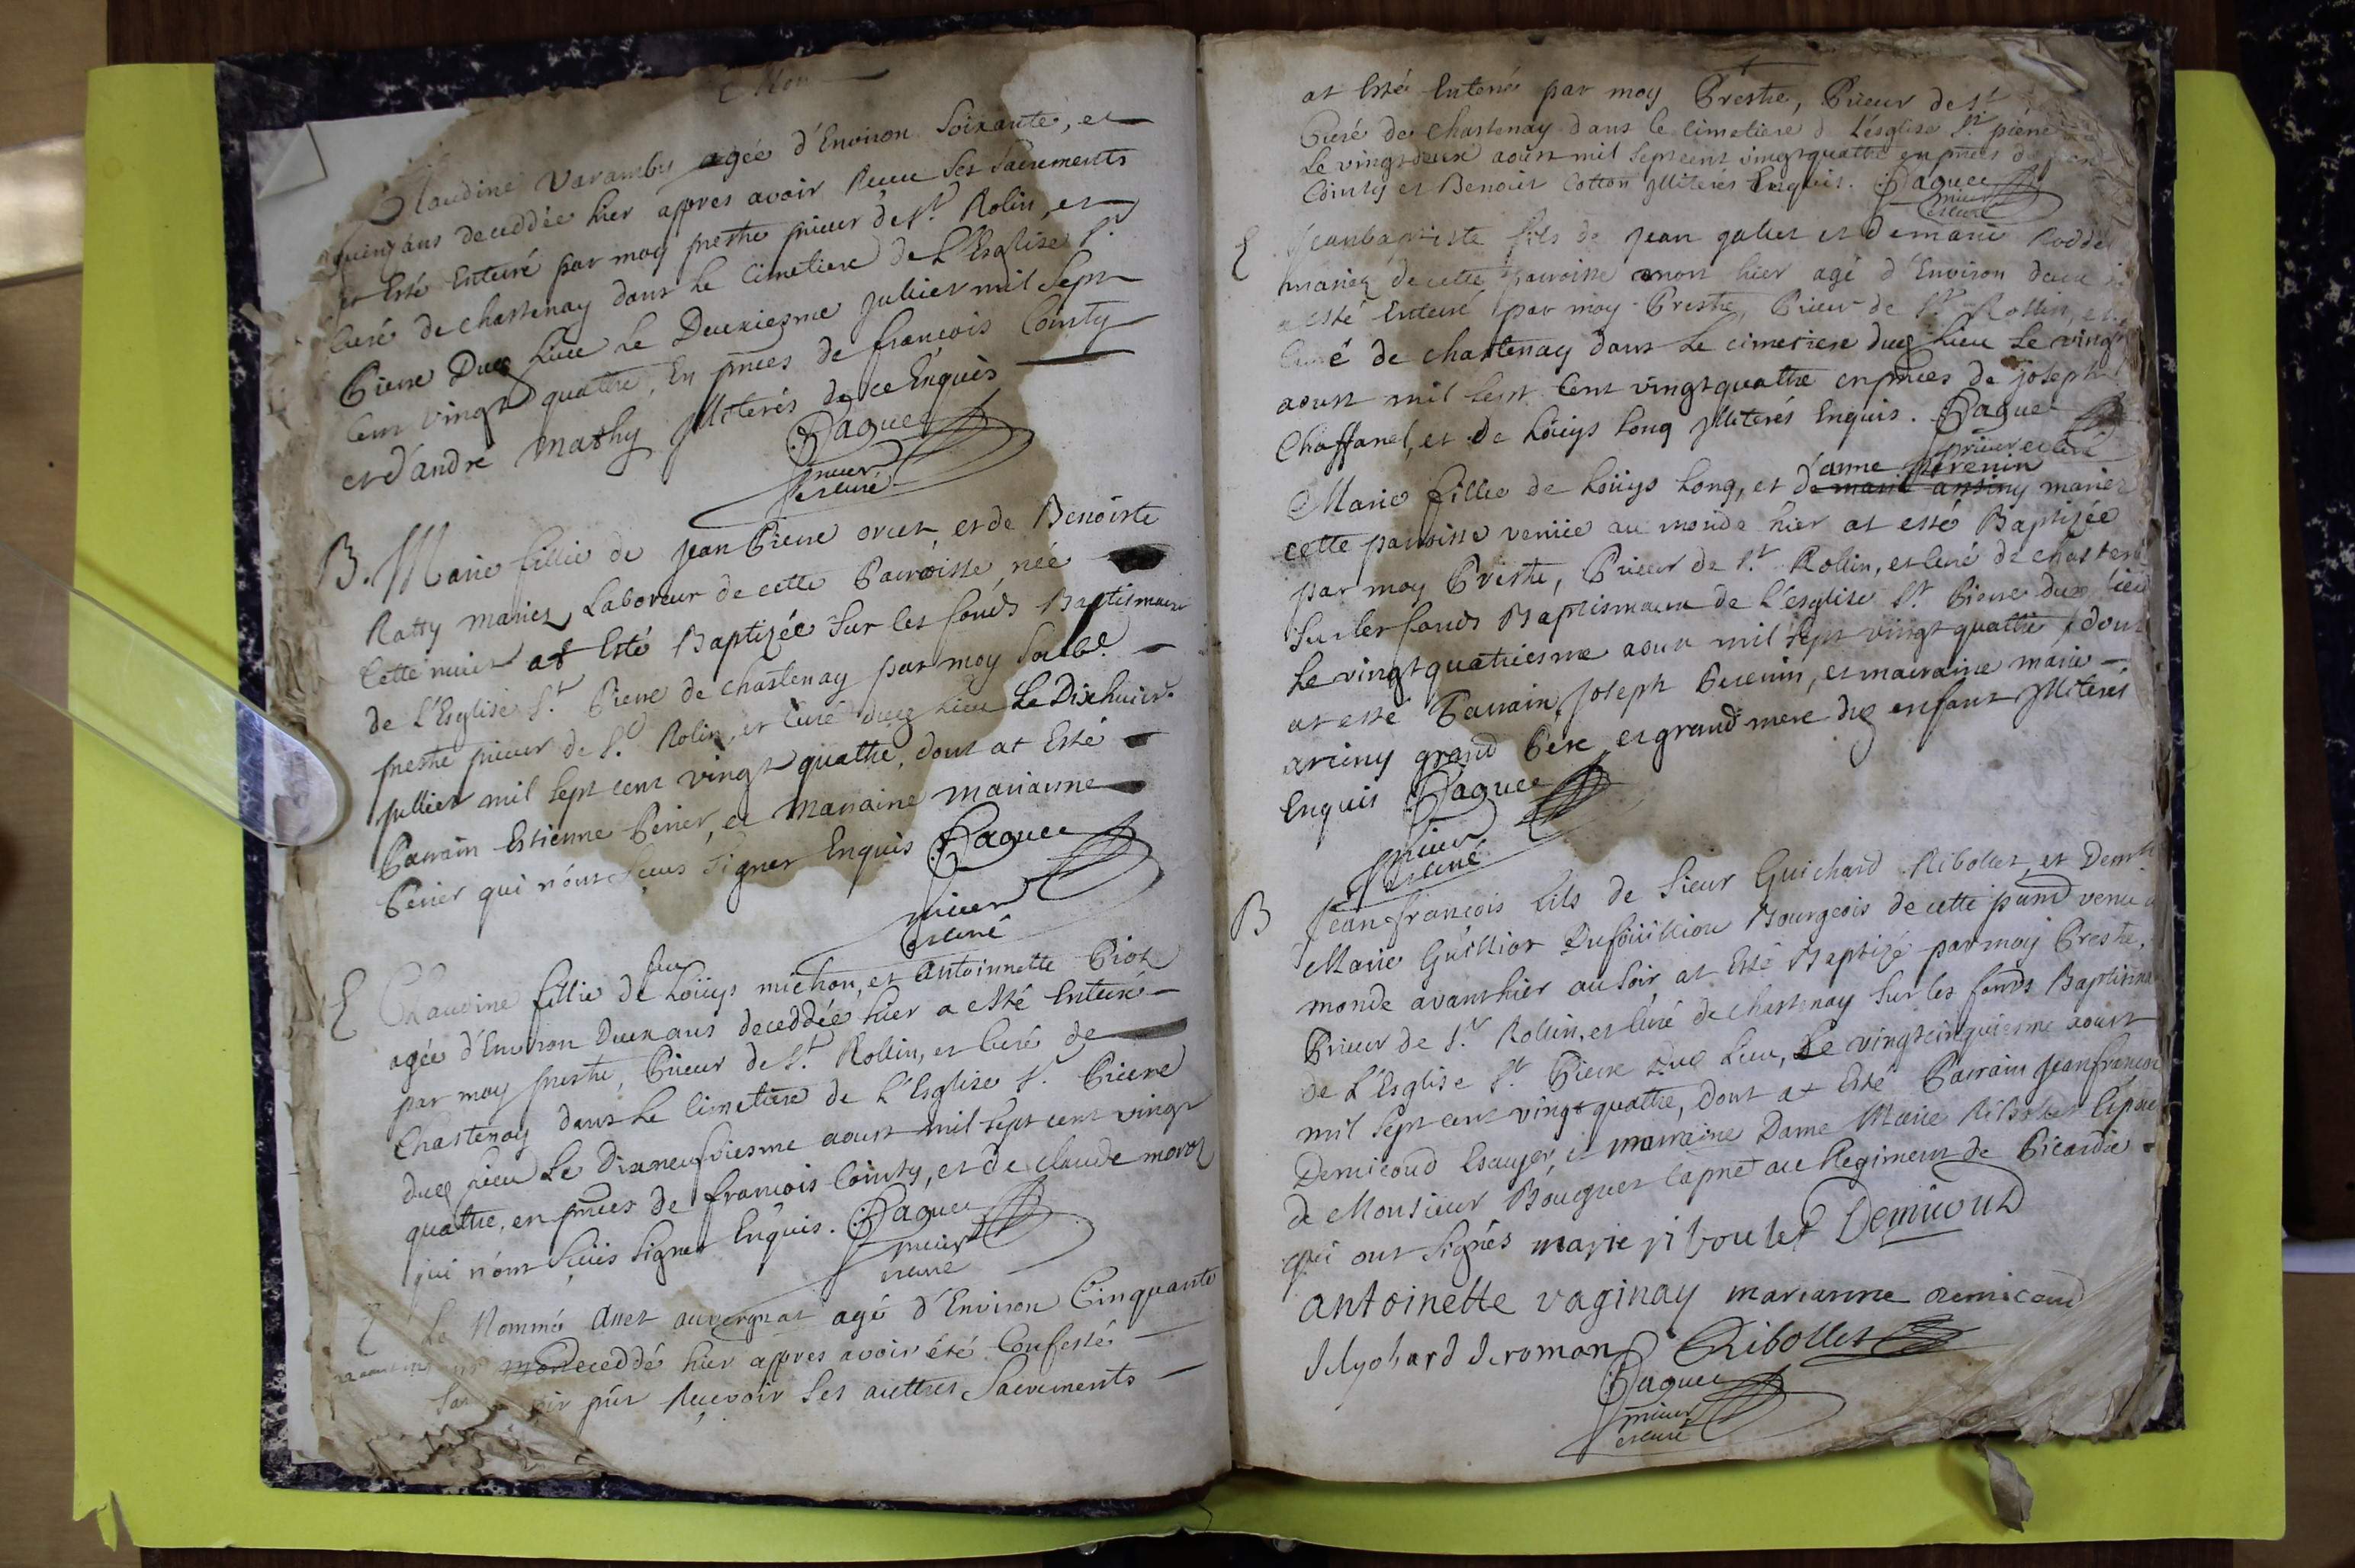 Claudine Varambu agée d'Environ Soixante, et
quinz ans deceddée hier appres avoir Receu Ses Sacrements
at Esté Enterré par moy prestre prieur de St. Rolin, et
Curé de chastenay dans le Cimetiere de L'Esglise St.
Pierre Dud Lieu le Deuxiesme Juilliet mil Sept
Cent vingt quattre, En pnces de francois Cointy
et d'andré Mathy Illiterés de ce Enquis
Paquet
prieur
et curé
B. Marie fillie de Jean Pierre orcet, et de Benoiste
Ratty mariez Laboreur de cette Parroisse, née
Cette nuict at Esté Baptizée Sur les fonds Baptismaux
de L'Esglise St. Pierre de chastenay par moy
prestre prieur de St. Rolin, et Curé dud Lieu Le Dixhuict
Jullier mil Sept cent vingt quattre, dont at Esté
Parrain Estienne Perier, et Marraine marianne
Perier qui n'ont Sceus Signer Enquis Paquet
prieur
et curé
feu
E Claudine fillie de Loüys michon, et Antoinnette Piot
agée d'Environ Deux ans deceddée hier a esté Enterré
par moy prestre, Prieur de St. Rollin, et Curé de
Chastenay dans Le Cimetiere de L'Esglise St. Pierre
dud Lieu Le Dixneufviesme aoust mil Sept cent vingt
quattre, en pnces de francois Cointy, et de claude morot
qui n'ont Sceüs Signer Enquis. Paquet
prieur
et curé
Le Nommé Anet auvergnat agé d'Environ Cinquante
deceddé hier appres avoir été Confessé
pür Reçevoir Les auttres Sacrements
at Esté Enterré par moy Prestre, Prieur de St
Curé de Chastenay dans le Cimetieré d L'esglise St. piérre
Le vingtdeux aoust mil Septcent vingtquattre en pnces de
Cointy et Benoist Cotton Illiterés Enquis. Paquet
prieur
et curé
E Jeanbaptiste fils de Jean galiet et de marie
mariez de cette parroisse mort hier agé d'Environ deux
a esté Enterré par moy Prestre, Prieur de St. Rollin, et
Curé de chastenay dans Le cimetiere dud Lieu Le vingt
aoust mil Sept Cent vingtquattre en pnces de joseph
Chaffanel, et de Loüys Long Illiterés Enquis. Paquet
prieur et curé
anne Perenin
Marie fillie de Loüys Long, et de marie arsiny mariez
cette parroisse venüe au monde hier at esté Baptizée
par moy Prestre, Prieur de St. Rollin, et Curé de chastenay
Sur les fonds Baptismaux de L'esglise St. Pierre dud lieu
Le vingtquatriesme aoust mil Sept vingt quattre, dont
at esté Parrain Joseph Perenin, et marraine marie
arsiny grand Pere et grand mere dud enfant Illiterés
Enquis Paquet
prieur
et curé
B Jean francois fils de Sieur Guichard Ribollet, et Demlle
Marie Guillior Dufoüilliou Bourgeois de cette pand venu a
monde avanthier au Soir at Esté Baptizé par moy Prestre,
Prieur de St. Rollin, et Curé de chastenay Sur les fonds Baptismaux
de L'Esglise St. Pierre Dud Lieu, Le vingtcinquiesme aoust
mil Sept cent vingt quattre, dont at Esté Parrain Jeanfrancois
Demicoud Escuyer, et marraine Dame Marie Ribollet Epouse
de Monsieur Bouquet Capne au Regiment de Picardie
qui ont Signés marie riboulet Demicoud
antoinette vaginay marianne demicoud
Ribollet
Paquet
prieur
et curé